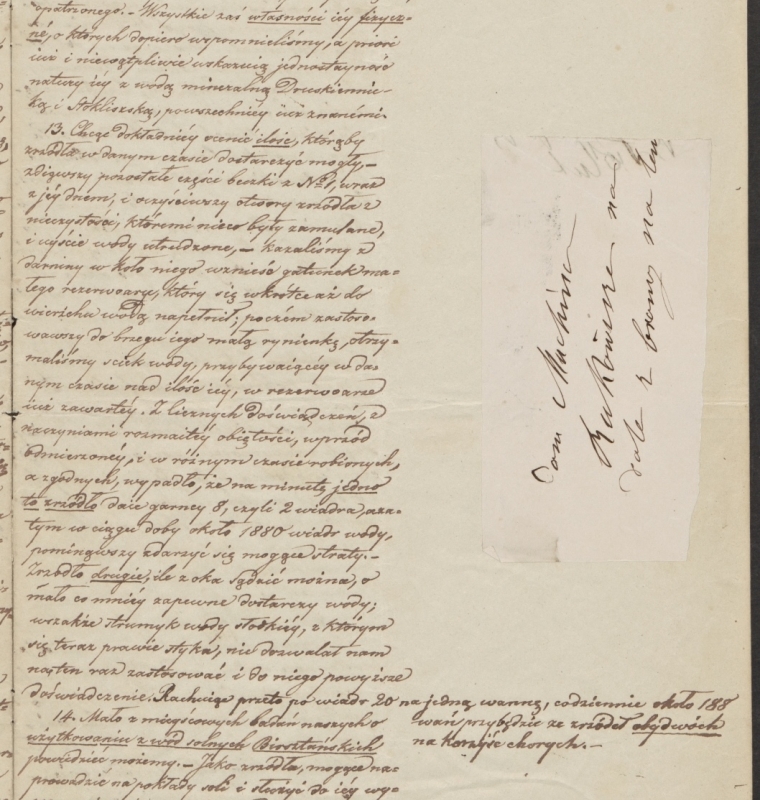 opatrzonego. – Wszystkie zaś własności iéy fizycz-
né, o których dopiero wspomnieliśmy, a priori
iuż i niewątpliwie wskazuią jednostayność
natury iéy z wodą mineralną Druskiennic-
ką i Stokliszską, powszechniéy iuż znanémi.
13. Chcąc dokładniéy ocenić ilość, którąby
zrzódła w danym czasie dostarczyć mogły, –
zdiąwszy pozostałe części beczki z N° 1, wraz
z jéy dnem, i oczyściwszy otwory zrzódła z
nieczystości, któremi nieco były zamulane,
i uyście wody utrudzone, – kazaliśmy z
darniny w koło niego wznieść gatunek ma-
łego rezerwoaru, który się wkrótce aż do
wierzchu wodą napełnił; poczém zastoso-
wawszy do brzegu iego małą rynienkę, otrzy-
maliśmy sciek wody, przybywaiącéy w da-
nym czasie nad ilość iéy, w rezerwoarze
iuż zawartéy. Z licznych doświadczeń, z
naczyniami rozmaitéy obiętości, wprzód
odmierzonéy, i w różnym czasie robionych,
a zgodnych, wypadło, że na minutę jedno
to zrzódło daie garncy 8, czyli 2 wiadra, a za-
tym w ciągu doby około 1880 wiadr wody,
pominąwszy zdarzyć się mogące straty. –
Zrzódło drugie, ile z oka sądzić można, o
mało co mniéy zapewne dostarczy wody;
wszakże strumyk wody słodkiéy, z którym
się teraz prawie styka, nie dozwalał nam
na ten raz zastosować i do niego powyższe
doświadczenie. Rachuiąc przeto po wiadr 20 na jedną wannę, codziennie około 188
wan przybędzie ze zrzódeł obydwóch
na korzyść chorych. –
14. Mało z mieyscowych badań naszych o
użytkowaniu z wód solnych Birsztańskich
powiedzieć możemy. – Jako zrzódła, mogące na-
prowadzić na pokłady soli i służyć do iéy wy-
Machina
na
dole z bramy na